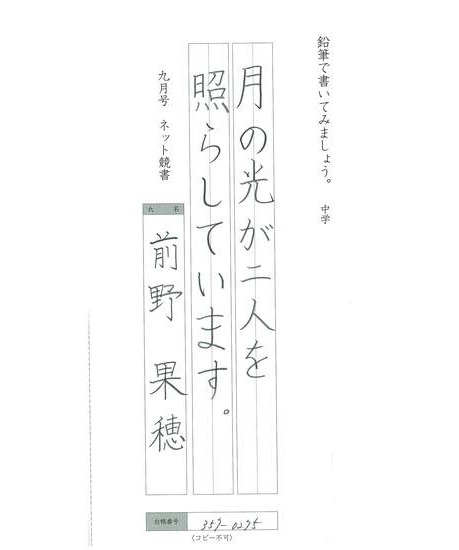 鉛筆で書いてみましょう。 中学
月の光が二人を
照らしています。
九月号 ネット競書
氏 名
前野 果穂
台帳番号 359-0275
(コピー不可)